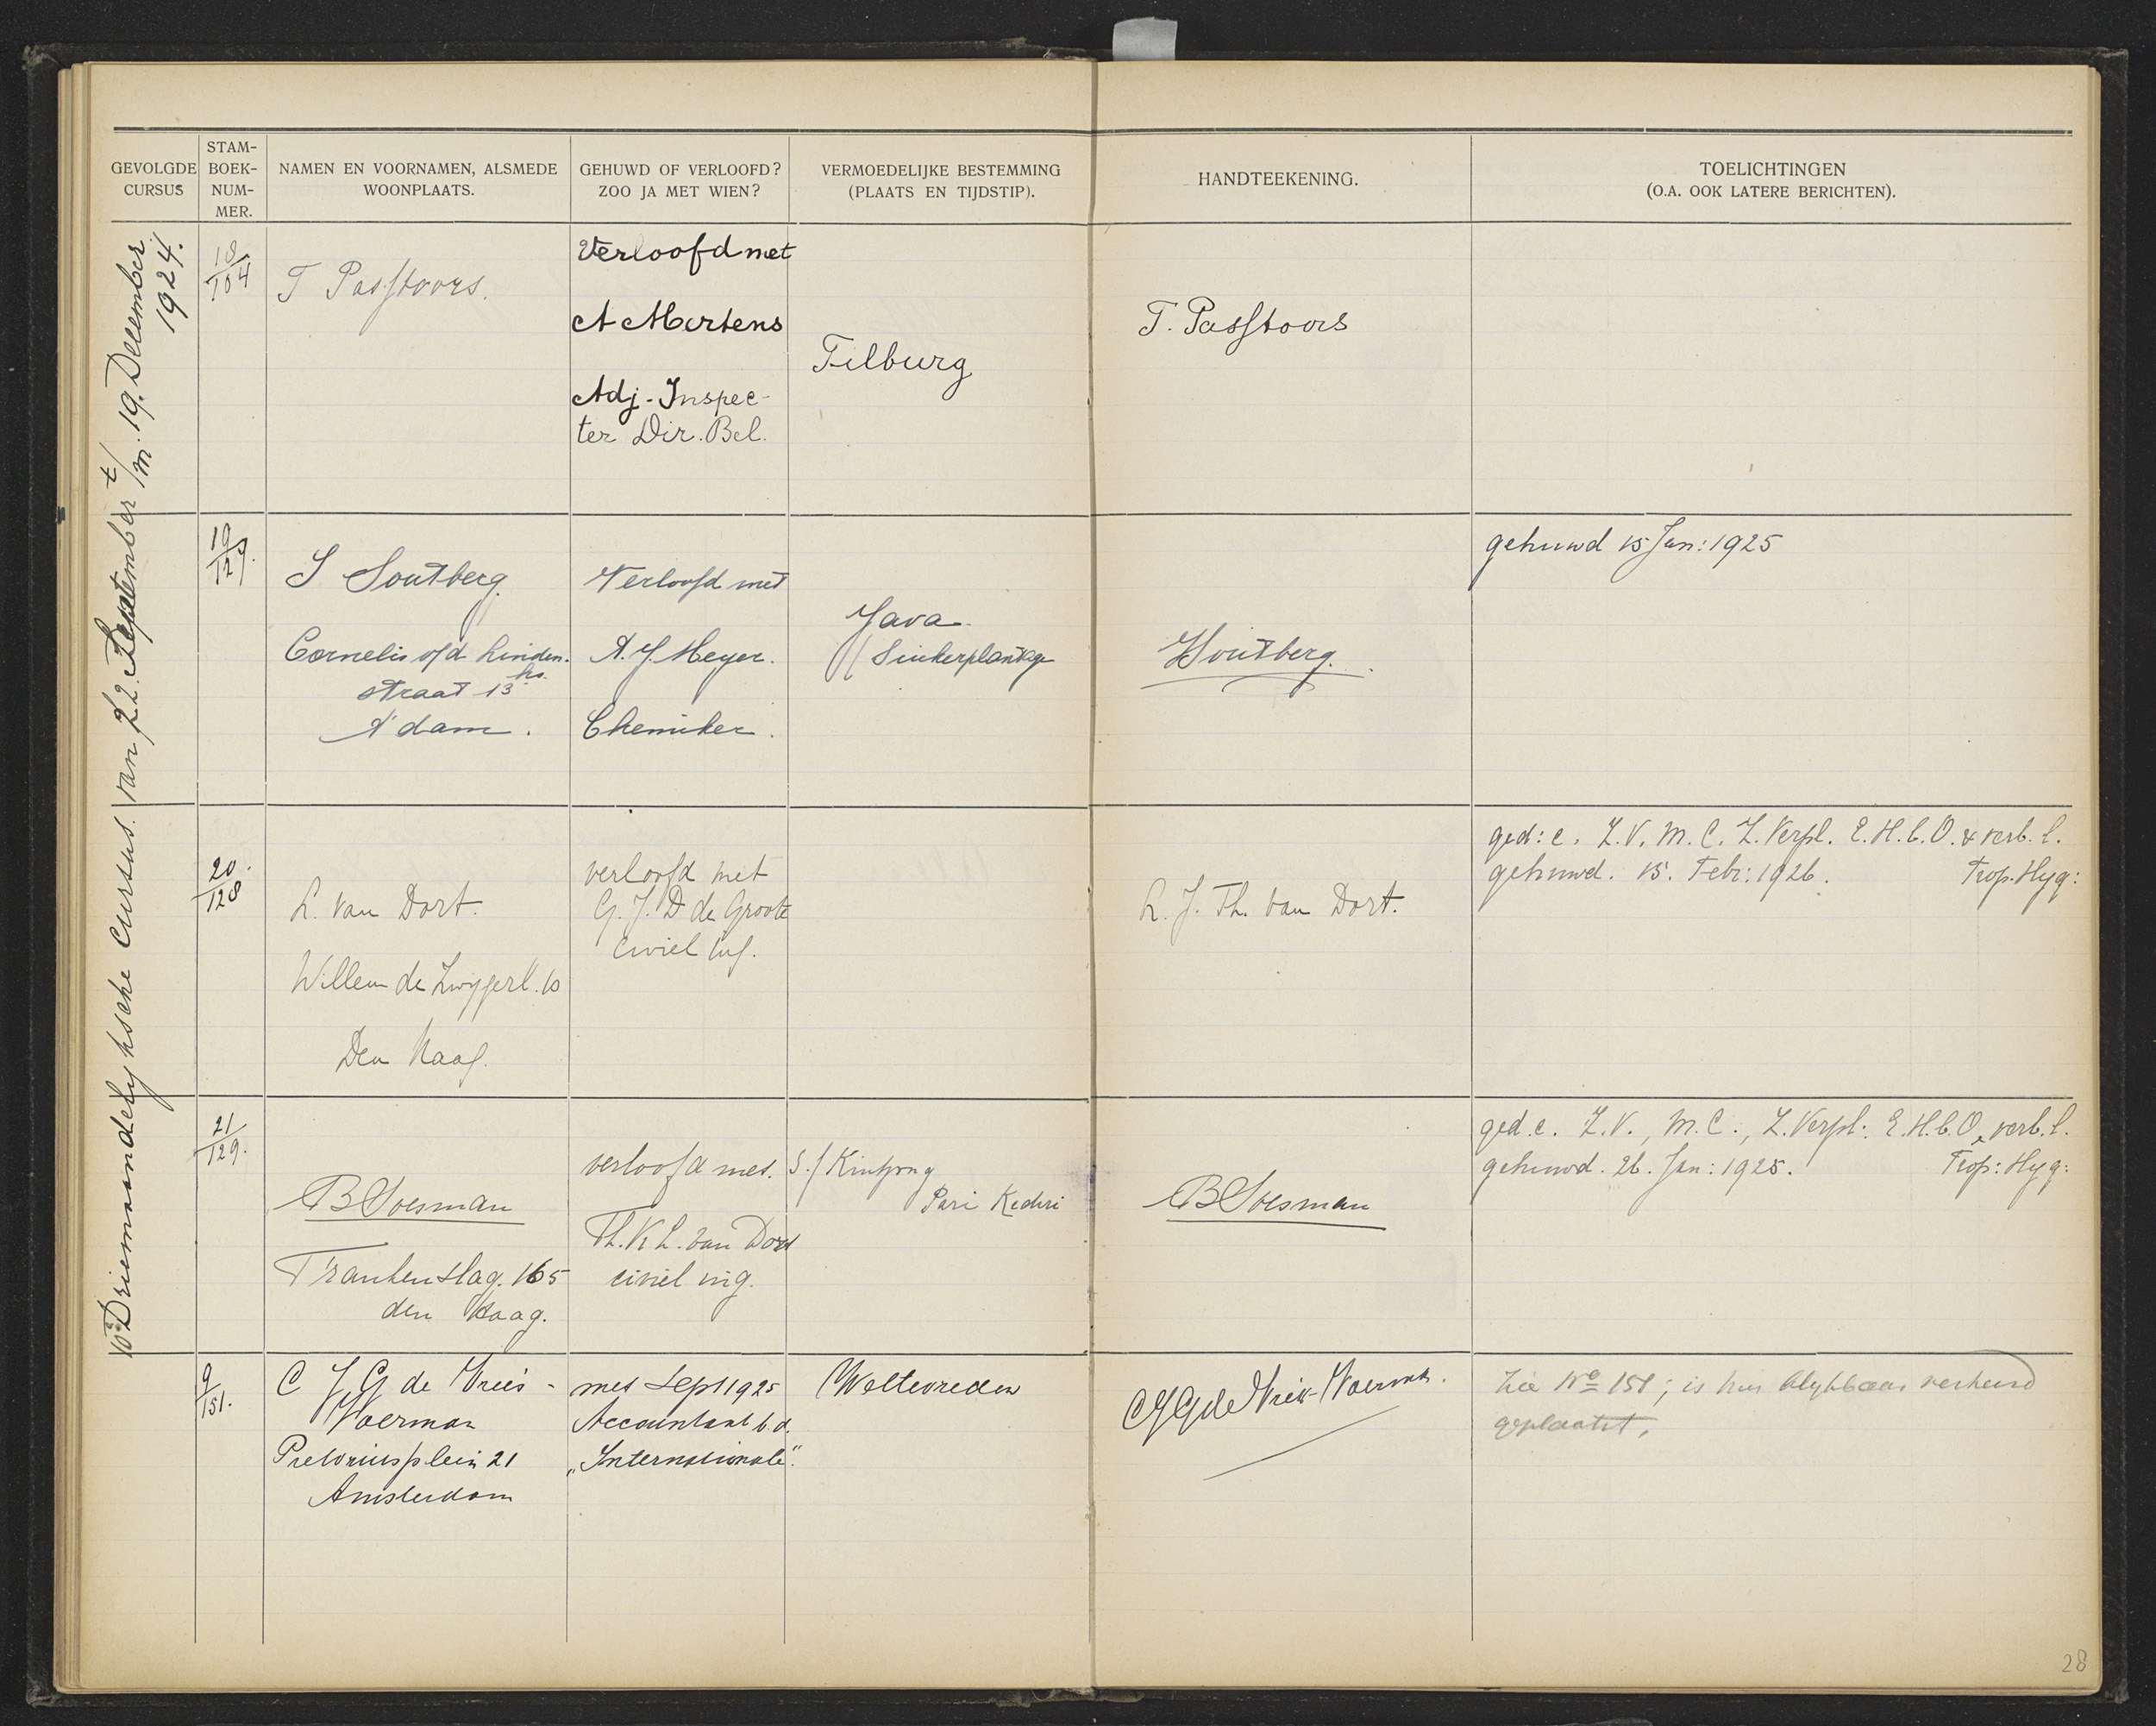 GEVOLGDE CURSUS
STAM-BOEK-NUM-MER.
NAMEN EN VOORNAMEN, ALSMEDE WOONPLAATS.
GEHUWD OF VERLOOFD? ZOO JA MET WIEN?
VERMOEDELIJKE BESTEMMING (PLAATS EN TIJDSTIP).
HANDTEEKENING.
TOELICHTINGEN (O.A. OOK LATERE BERICHTEN).
10e Driemaandelyksche Cursus. van 22. September t/m. 19. December 1924.
18/104
T Passtoors.
Verloofd met
A Mertens
Adj-Inspec-
ter Dir. Bel.
Tilburg
T. Passtoors
19/127.
S Soutberg
Cornelis v/d Linden.
straat 13 hs.
A'dam.
Verloofd met
A. J. Meyer.
Chemiker.
Java
Suikerplantage
Soutberg.
gehuwd 15 Jan: 1925
20/128
L. van Dort.
Willem de Zwijgerl. 10
Den Haag.
verloofd met
G. J. D de Groote
civiel ing.
L. J. Th. van Dort.
ged: c. Z. V. M. C. Z. Verpl. E. H. b. O. & verb. l.
gehuwd. 15. Febr: 1926. Trop. Hyg:
21/129.
B Soesman
Frankenslag. 165
den Haag.
verloofd met.
Th. K L. van Dort
civiel ing.
S./
Pari Kediri
B Soesman
ged. c. Z. V., M. C., Z. Verpl: E. H. b. O, verb. l.
gehuwd. 26. Jan: 1925. Trop: Hyg:
9/151.
C J G de Vries-
Woerman
Pretoriusplein 21
Amsterdam
met Sept 1925
Accountant b. d.
„Internationale".
Weltevreden
C J G de Vries-Woerman.
Zie No 151; is hier blykbaar verkeerd
geplaatst.
28